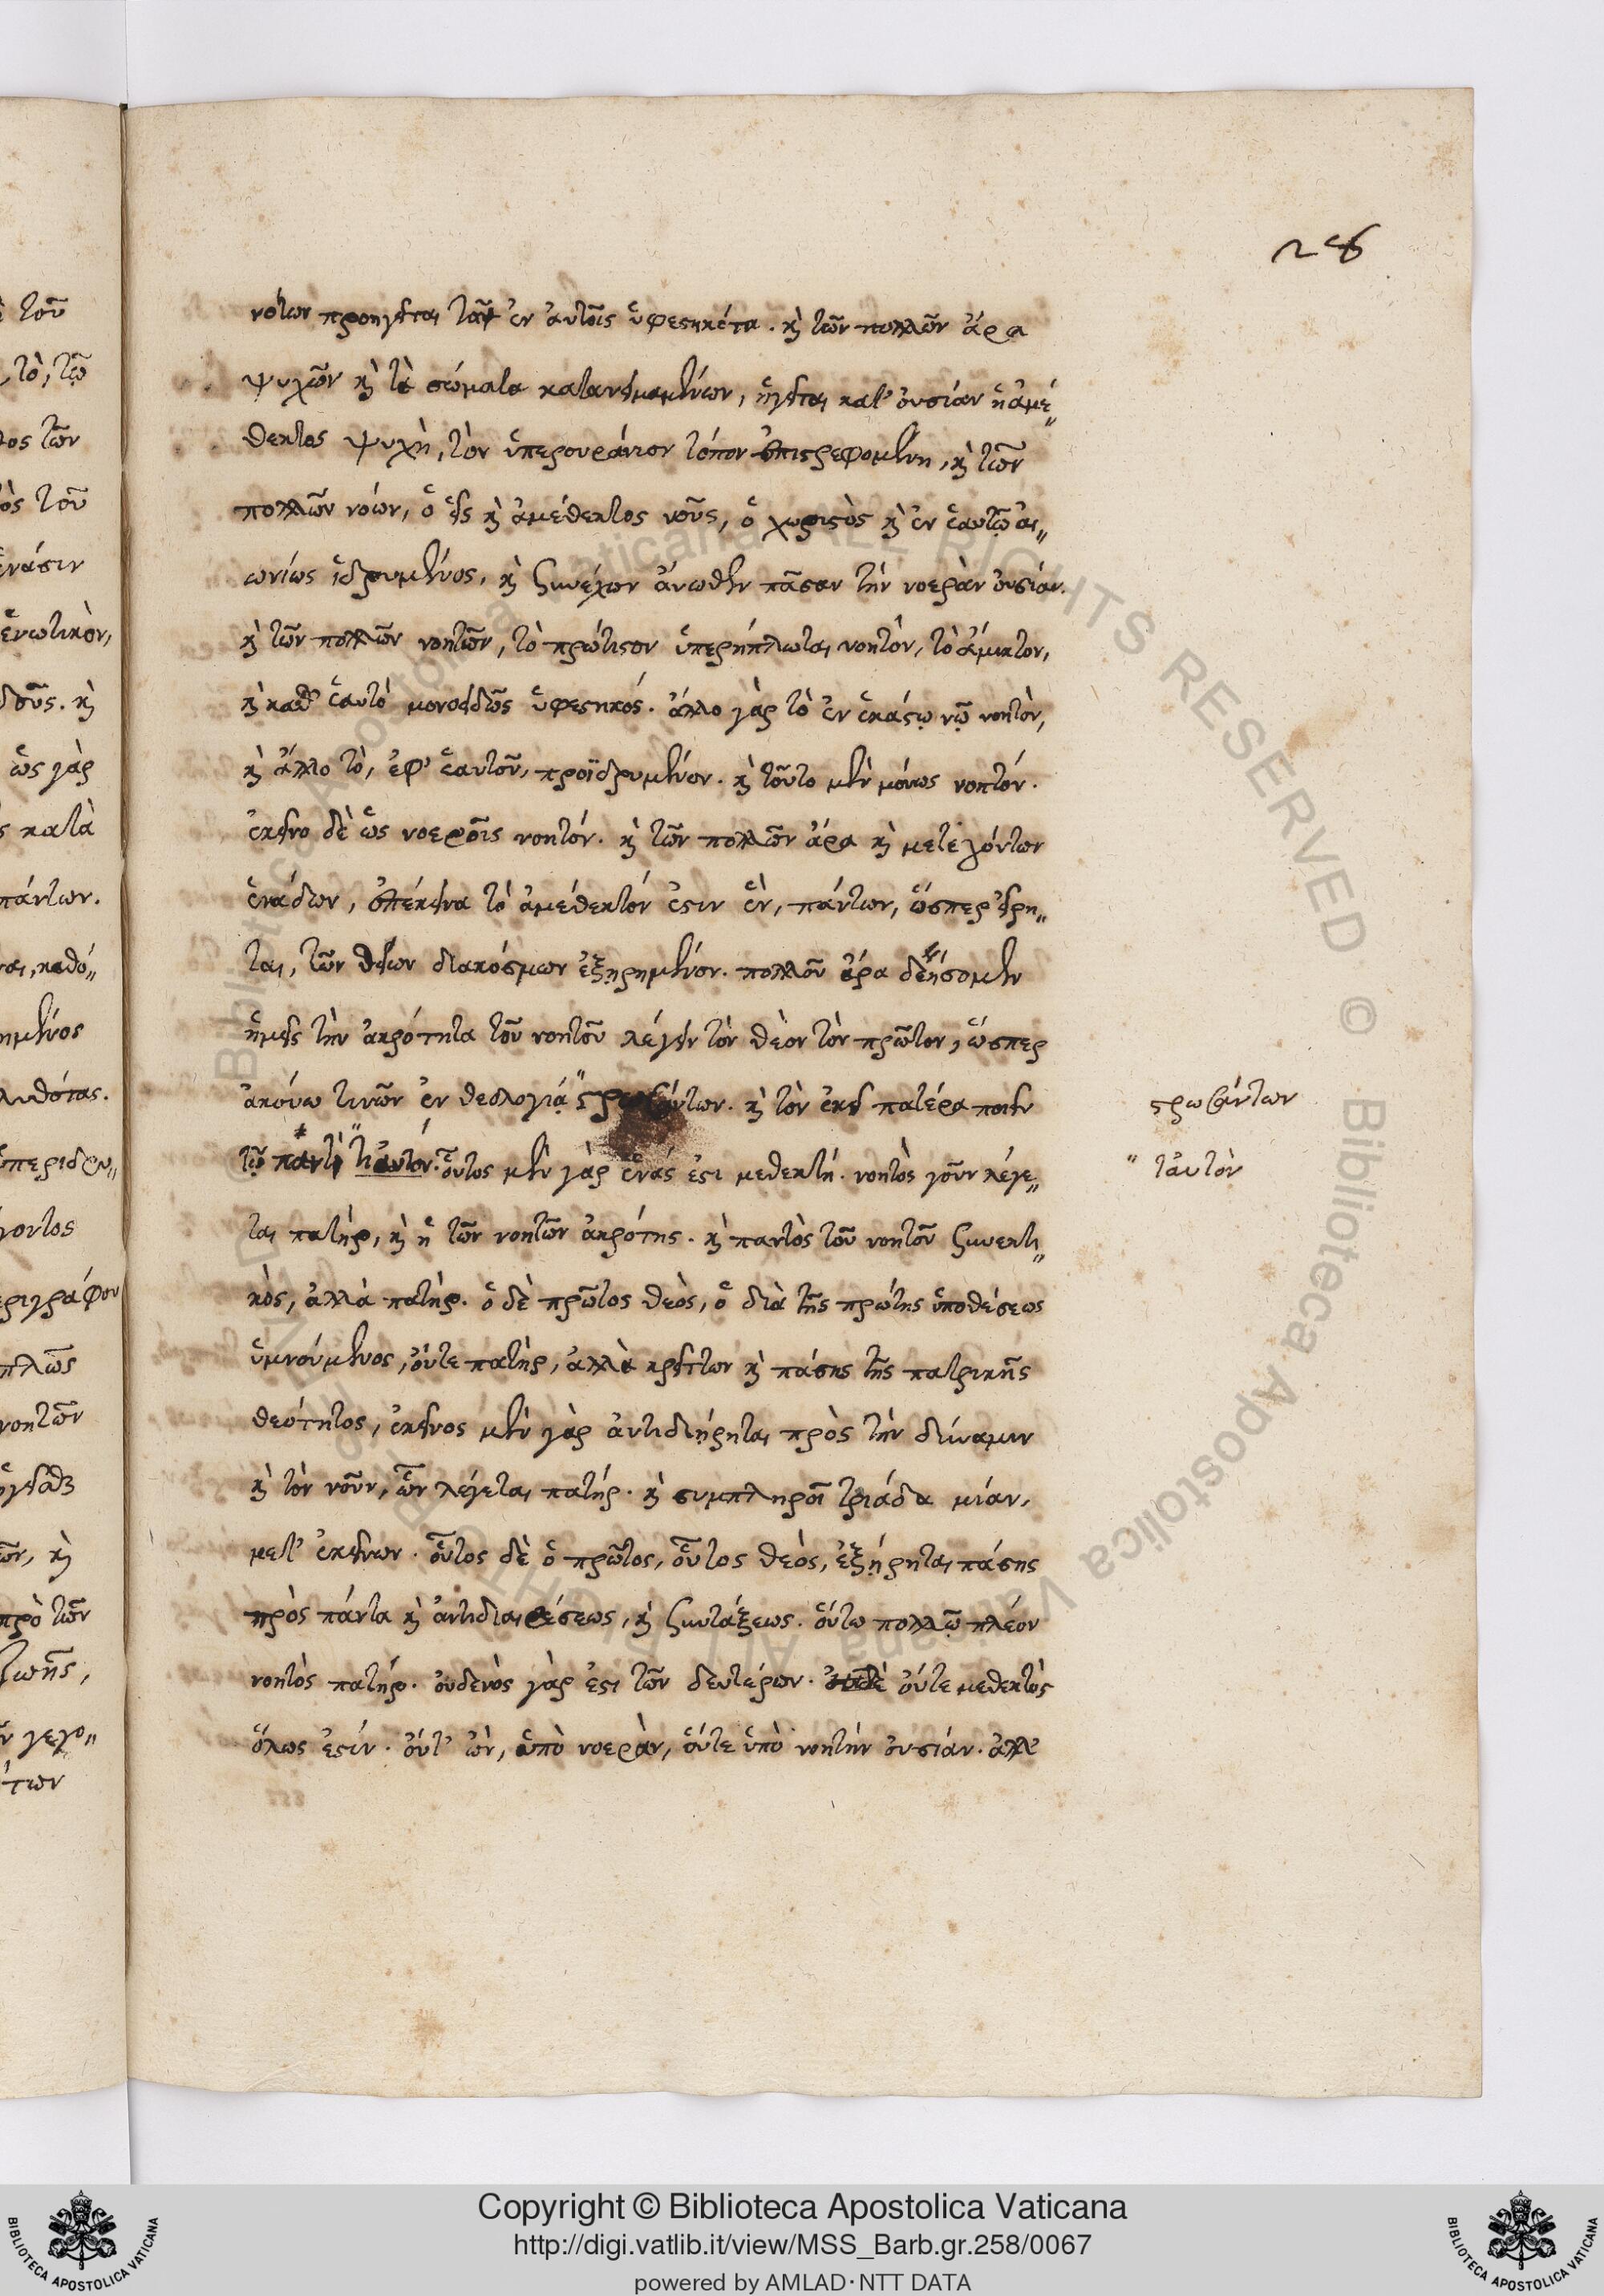 246
νότων προηγεῖται τῶν ἐν αὐτοῖς ὑφεστηκότα. καὶ τῶν πολλῶν ἄρα
ψυχῶν καὶ τὰ σώματα κατανειμαμένων, ἡγεῖται κατ' οὐσίαν ἡ ἀμέ„
θεκτος ψυχὴ, τὸν ὑπερουράνιον τόπον ἐπιστρεφομένη, καὶ τῶν
πολλῶν νόων, ὁ εἷς καὶ ἀμέθεκτος νοῦς, ὁ χωριστὸς καὶ ἐν ἑαυτῷ αἰ„
ωνίως ἱδρυμένος, καὶ συνέχων ἄνωθεν πᾶσαν τὴν νοερὰν οὐσίαν.
καὶ τῶν πολλῶν νοητῶν, τὸ πρώτιστον ὑπερήπλωται νοητὸν, τὸ ἄμικτον,
καὶ καθ' ἑαυτὸ μονοειδῶς ὑφεστηκός. ἄλλο γὰρ τὸ ἐν ἑκάστῳ νῷ νοητὸν,
καὶ ἄλλο τὸ, ἐφ' ἑαυτοῦ, προϊδρυμένον. καὶ τοῦτο μὲν μόνως νοητόν.
ἐκεῖνο δὲ ὡς νοεροῖς νοητόν. καὶ τῶν πολλῶν ἄρα καὶ μετεχόντων
ἑνάδων, ἐπέκεινα τὸ ἀμέθεκτόν ἐστιν ἓν, πάντων, ὥσπερ εἴρη„
ται, τῶν θείων διακόσμων ἐξῃρημένον. πολλοῦ ἄρα δεήσομεν
ἡμεῖς τὴν ἀκρότητα τοῦ νοητοῦ λέγειν τὸν θεὸν τὸν πρῶτον, ὥσπερ
ἀκούω τινῶν ἐν θεολογίᾳ . καὶ τὸν ἐκεῖ πατέρα ποιεῖν
τῷ παντὶ . οὗτος μὲν γὰρ ἑνάς ἐστι μεθεκτή. νοητὸς γοῦν λέγε„
ται πατὴρ, καὶ ἡ τῶν νοητῶν ἀκρότης. καὶ παντὸς τοῦ νοητοῦ συνεκτι„
κὸς, ἀλλὰ πατήρ. ὁ δὲ πρῶτος θεὸς, ὁ διὰ τῆς πρώτης ὑποθέσεως
ὑμνούμενος, οὔτε πατὴρ, ἀλλὰ κρείττων καὶ πάσης τῆς πατρικῆς
θεότητος, ἐκεῖνος μὲν γὰρ ἀντιδιῄρηται πρὸς τὴν δύναμιν
καὶ τὸν νοῦν, ὧν λέγεται πατήρ. καὶ συμπληροῖ τριάδα μίαν,
μετ' ἐκείνων. οὗτος δὲ ὁ πρῶτος, οὗτος θεὸς, ἐξῄρηται πάσης
πρὸς πάντα καὶ ἀντιδιαιρέσεως, καὶ συντάξεως. οὕτω πολλῷ πλέον
νοητὸς πατήρ. οὐδενὸς γὰρ ἐστι τῶν δευτέρων. οὔτε μεθεκτὸς
ὅλως ἐστίν. οὔτ' ὢν, ὑπὸ νοερὰν, οὔτε ὑπὸ νοητὴν οὐσίαν. ἀλλ'
στρωβάντων
„ ταὐτὸν
Copyright © Biblioteca Apostolica Vaticana
http://digi.vatlib.it/view/MSS_Barb.gr.258/0067
powered by AMLAD·NTT DATA